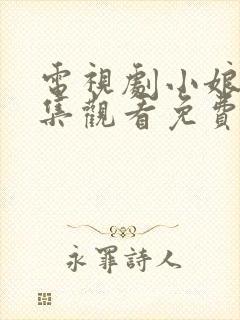 電視劇小娘
集觀看免費
永罪詩人